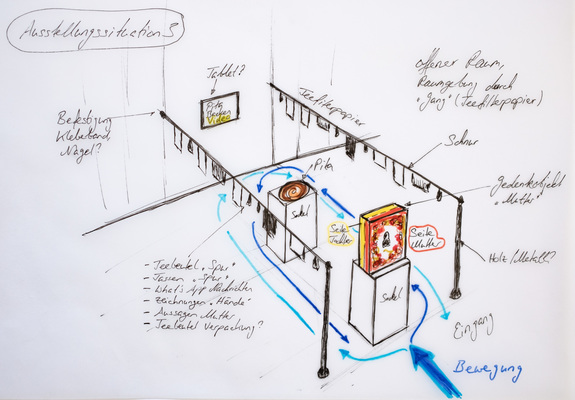 Ausstellungssituation 3
Tablet?
Pita
backen
Video
Befestigung
Klebeband,
Nagel?
Teefilterpapier
offener Raum,
Raumgebung durch
"Gang" (Teefilterpapier)
Schnur
Pita
Sockel
Gedenkobjekt
"Mutter"
Seite
Tochter
Seite
Mutter
Sockel
Holz/Metall?
Eingang
Bewegung
- Teebeutel "Spur"
- Tassen "Spur"
- What's App Nachrichten
- Zeichnungen "Hände"
- Aussagen Mutter
- Teebeutel Verpackung?